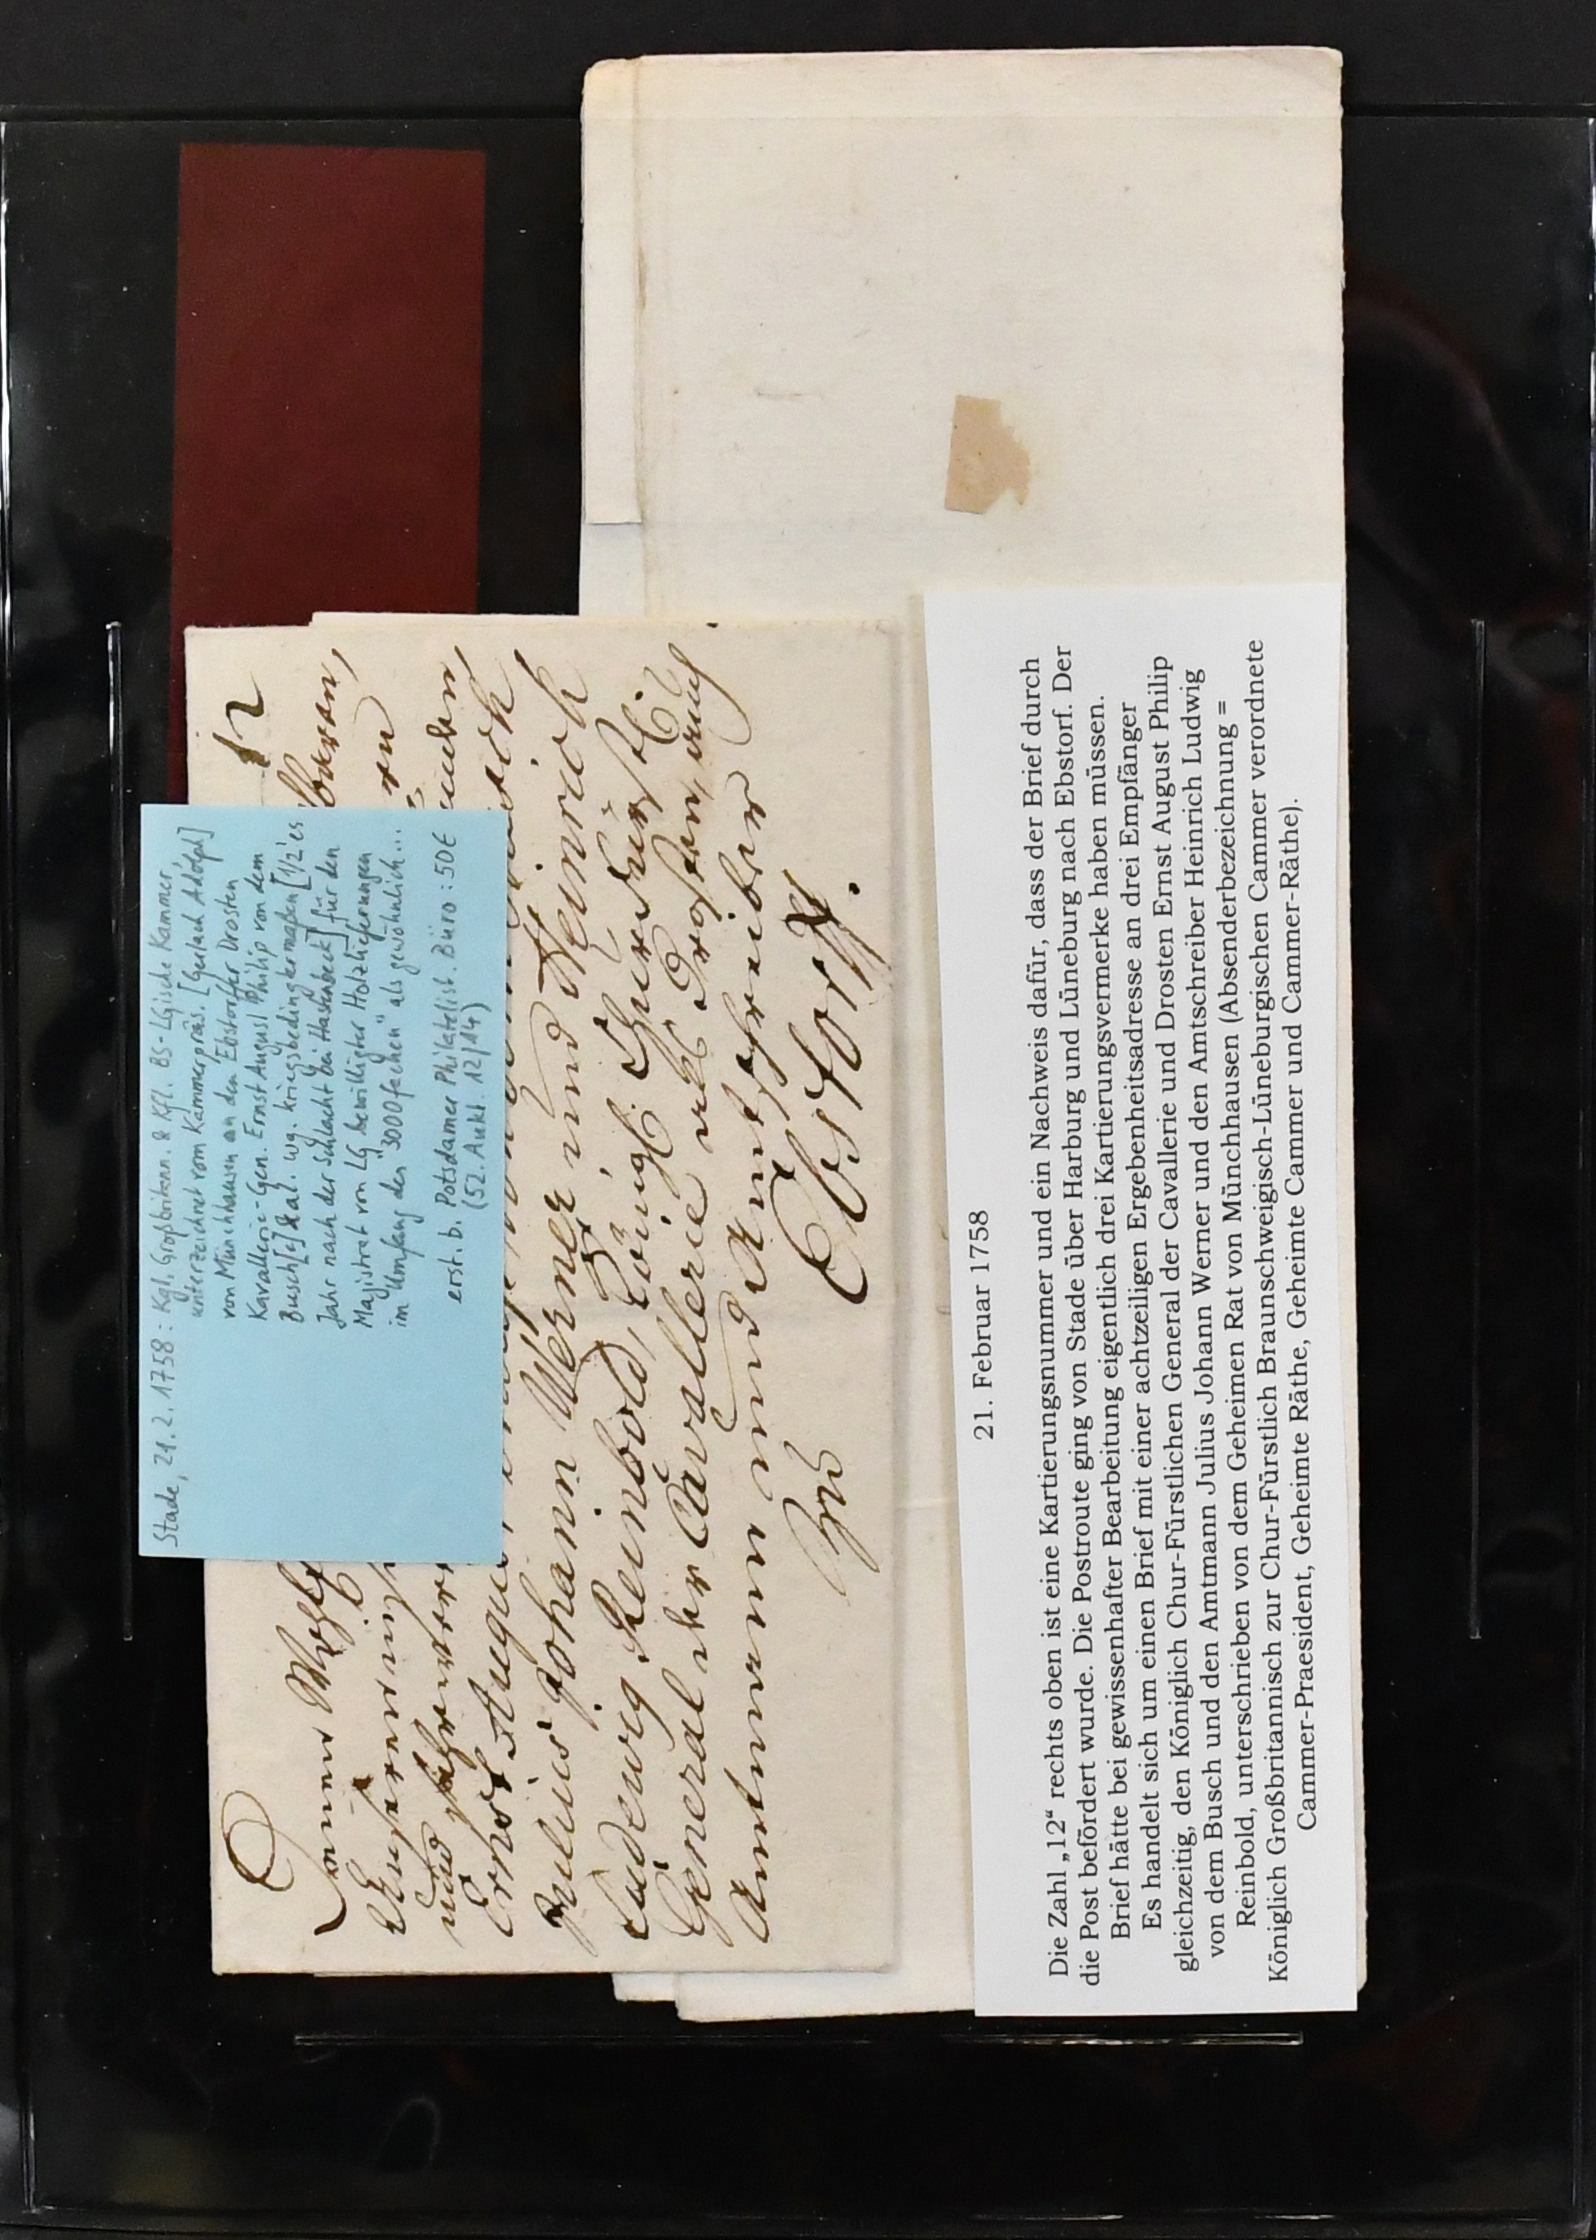 Stade, 21.2.1758: Kgl. Großbritann. & Kfl. BS-LGische Kammer,
unterzeichnet vom Kammerpräs. [Gerlach Adolph]
von Münchhausen an den Ebstorffer Drosten
Kavallerie-Gen. Ernst August Philip von dem
Busch[e] & al. wg. kriegsbedingtermaßen [1/2 es
Jahr nach der Schlacht bei Hastenbeck] für den
Magistrat von LG bewilligter Holzlieferungen
im Umfang des "3000fachen" als gewöhnlich...
erst. b. Potsdamer Philatelist. Büro: 50€
(52. Aukt. 12/14)
12
Denen
und
Ernst August
Julius Johann Werner und Heinrich
Ludewig Reinbold, Königl. Churfürstl.
General der Cavallerie Drosten, auch
Amtmann und Amtschreiber
Zu Ebstorff.
21. Februar 1758
Die Zahl „12“ rechts oben ist eine Kartierungsnummer und ein Nachweis dafür, dass der Brief durch
die Post befördert wurde. Die Postroute ging von Stade über Harburg und Lüneburg nach Ebstorf. Der
Brief hätte bei gewissenhafter Bearbeitung eigentlich drei Kartierungsvermerke haben müssen.
Es handelt sich um einen Brief mit einer achtzeiligen Ergebenheitsadresse an drei Empfänger
gleichzeitig, den Königlich Chur-Fürstlichen General der Cavallerie und Drosten Ernst August Philip
von dem Busch und den Amtmann Julius Johann Werner und den Amtschreiber Heinrich Ludwig
Reinbold, unterschrieben von dem Geheimen Rat von Münchhausen (Absenderbezeichnung =
Königlich Großbritannisch zur Chur-Fürstlich Braunschweigisch-Lüneburgischen Cammer verordnete
Cammer-Praesident, Geheimte Räthe, Geheimte Cammer und Cammer-Räthe).